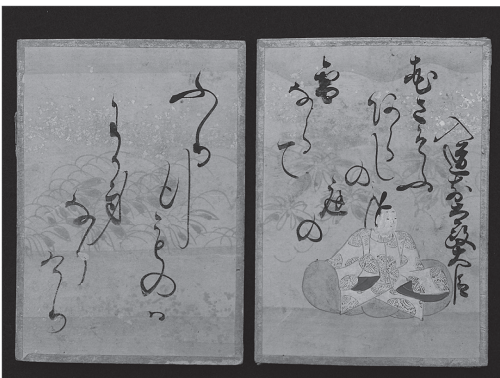 入道前太政大臣
花さそふ
あらしの
庭の
雪
ならて
ふり
行
ものハ
わか身
なり
けり